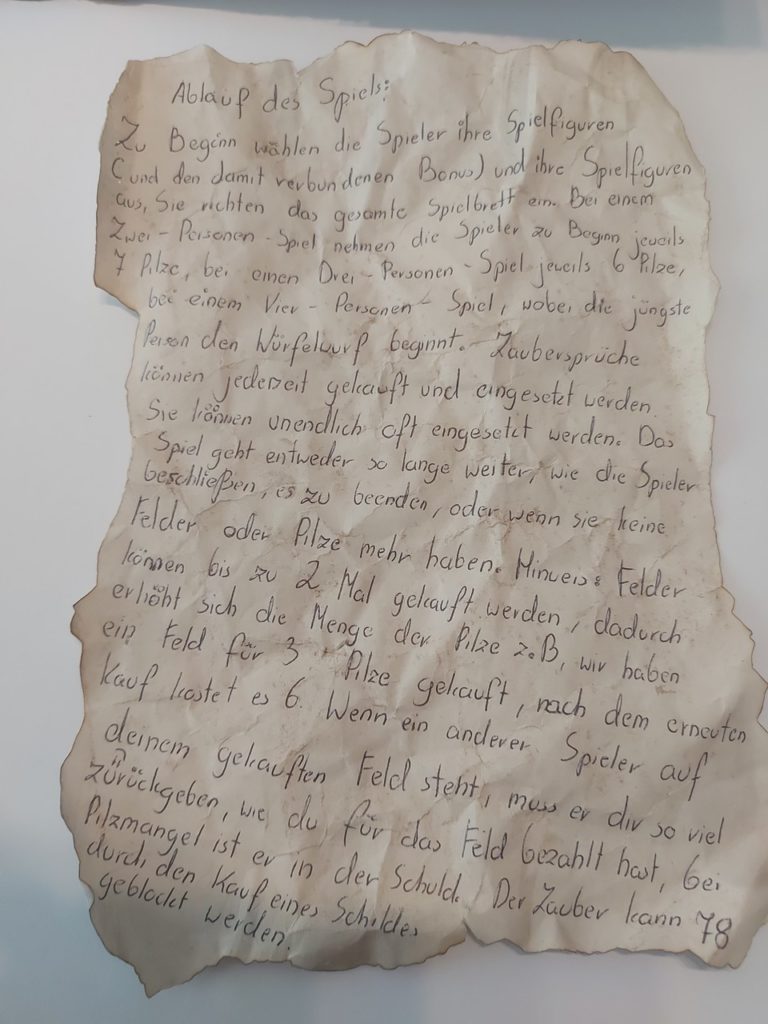 Ablauf des Spiels:
Zu Beginn wählen die Spieler ihre Spielfiguren
(und den damit verbundenen Bonus) und ihre Spielfiguren
aus, Sie richten das gesamte Spielbrett ein. Bei einem
Zwei-Personen-Spiel nehmen die Spieler zu Beginn jeweils
7 Pilze, bei einen Drei-Personen-Spiel jeweils 6 Pilze,
bei einem Vier-Personen-Spiel, wobei die jüngste
Person den Würfelwurf beginnt. Zaubersprüche
können jederzeit gekauft und eingesetzt werden.
Sie können unendlich oft eingesetzt werden. Das
Spiel geht entweder so lange weiter, wie die Spieler
beschließen, es zu beenden, oder wenn sie keine
Felder oder Pilze mehr haben. Hinweis: Felder
können bis zu 2 Mal gekauft werden, dadurch
erhöht sich die Menge der Pilze z.B, wir haben
ein Feld für 3 Pilze gekauft, nach dem erneuten
Kauf kostet es 6. Wenn ein anderer Spieler auf
deinem gekauften Feld steht, muss er dir so viel
zürückgeben, wie du für das Feld bezahlt hast, bei
Pilzmangel ist er in der Schuld. Der Zauber kann 78
durch den Kauf eines Schildes
geblockt werden.